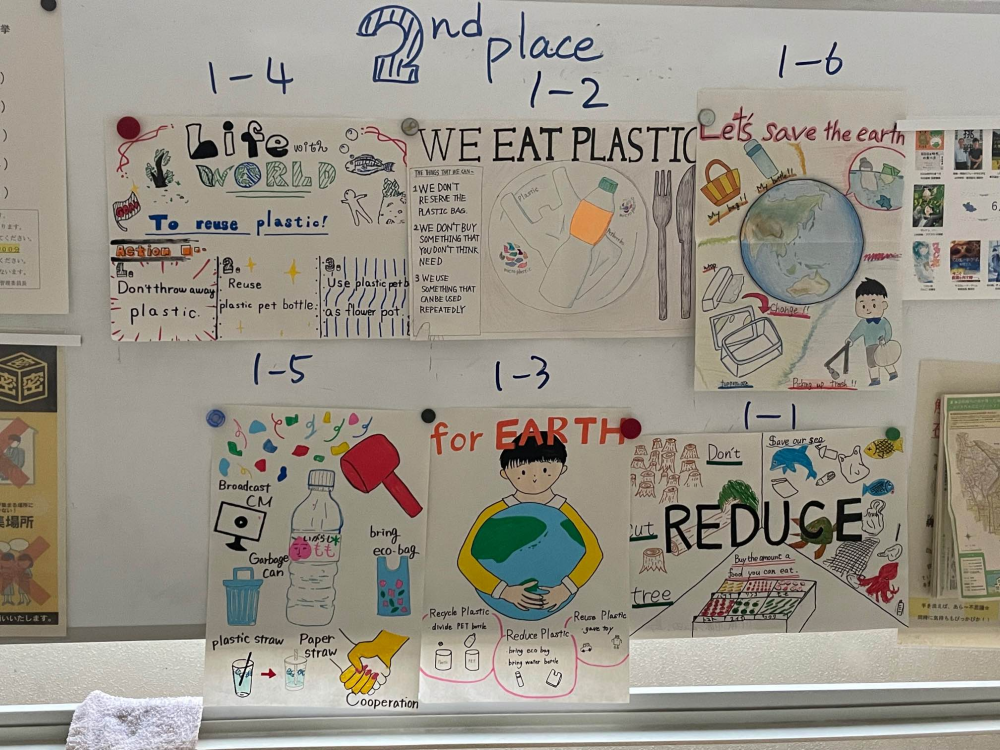 2nd place
1-4
1-2
1-6
Life with
WORLD
To reuse plastic!
Action
1.
Don't throw away
plastic.
2.
Reuse
plastic pet bottle.
3.
Use plastic pet b
as flower pot.
WE EAT PLASTIC
THE THINGS THAT WE CAN
1 WE DON'T
RESERVE THE
PLASTIC BAG.
2 WE DON'T BUY
SOMETHING THAT
YOU DON'T THINK
NEED
3 WE USE
SOMETHING THAT
CAN BE USED
REPEATEDLY
Plastic
Let's save the earth
My bag!!
My bottle!!
Change!!
Picking up trash!!
1-5
1-3
1-1
Broadcast
CM
Garbage
can
いろはす
もも
bring
eco-bag
plastic straw
Paper
straw
Cooperation
for EARTH
Recycle Plastic
divide PET bottle
Reduce Plastic
bring eco bag
bring water bottle
Reuse Plastic
save toy
Don't
cut
tree
Save our sea
REDUCE
Buy the amount a
food you can eat.
集場所